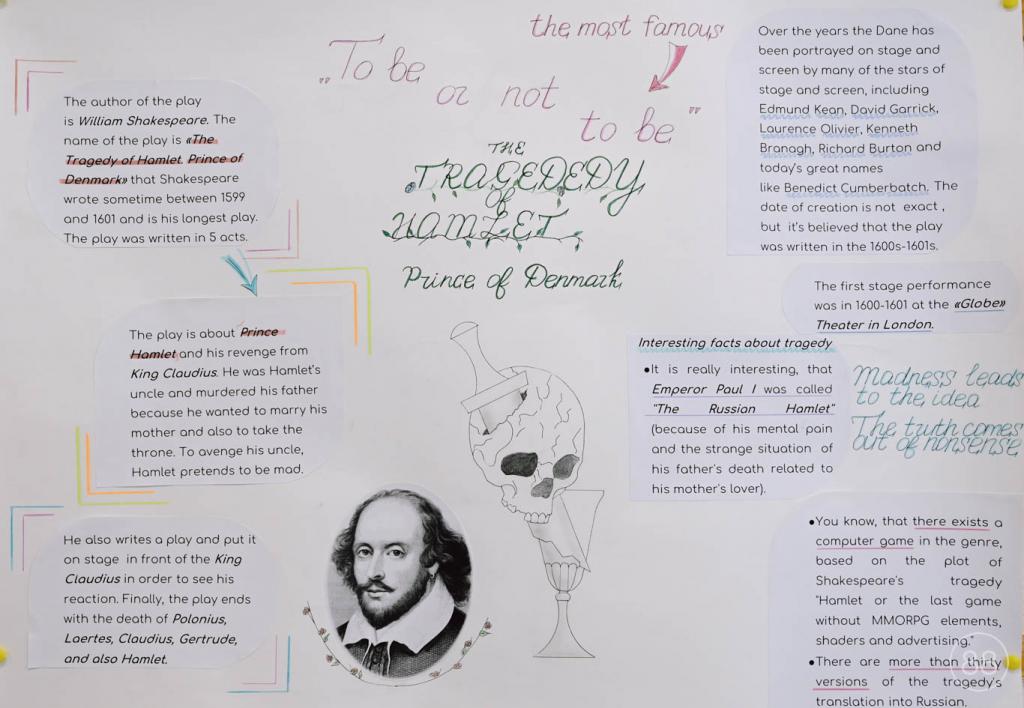 the most famous
„To be
or not
to be"
THE
TRAGEDEDY
of
HAMLET
Prince of Denmark
The author of the play
is William Shakespeare. The
name of the play is «The
Tragedy of Hamlet. Prince of
Denmark» that Shakespeare
wrote sometime between 1599
and 1601 and is his longest play.
The play was written in 5 acts.
The play is about Prince
Hamlet and his revenge from
King Claudius. He was Hamlet's
uncle and murdered his father
because he wanted to marry his
mother and also to take the
throne. To avenge his uncle,
Hamlet pretends to be mad.
He also writes a play and put it
on stage in front of the King
Claudius in order to see his
reaction. Finally, the play ends
with the death of Polonius,
Laertes, Claudius, Gertrude,
and also Hamlet.
Over the years the Dane has
been portrayed on stage and
screen by many of the stars of
stage and screen, including
Edmund Kean, David Garrick,
Laurence Olivier, Kenneth
Branagh, Richard Burton and
today's great names
like Benedict Cumberbatch. The
date of creation is not exact ,
but it's believed that the play
was written in the 1600s-1601s.
The first stage performance
was in 1600-1601 at the «Globe»
Theater in London.
Interesting facts about tragedy
•It is really interesting, that
Emperor Paul I was called
"The Russian Hamlet"
(because of his mental pain
and the strange situation of
his father's death related to
his mother's lover).
Madness leads
to the idea
The truth comes
out of nonsense
•You know, that there exists a
computer game in the genre,
based on the plot of
Shakespeare's tragedy
"Hamlet or the last game
without MMORPG elements,
shaders and advertising."
•There are more than thirty
versions of the tragedy's
translation into Russian.
88